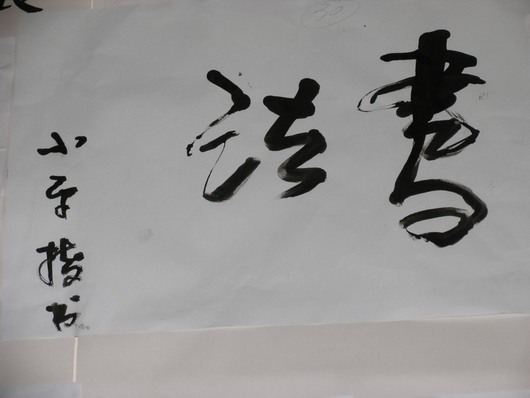 書法
小平书